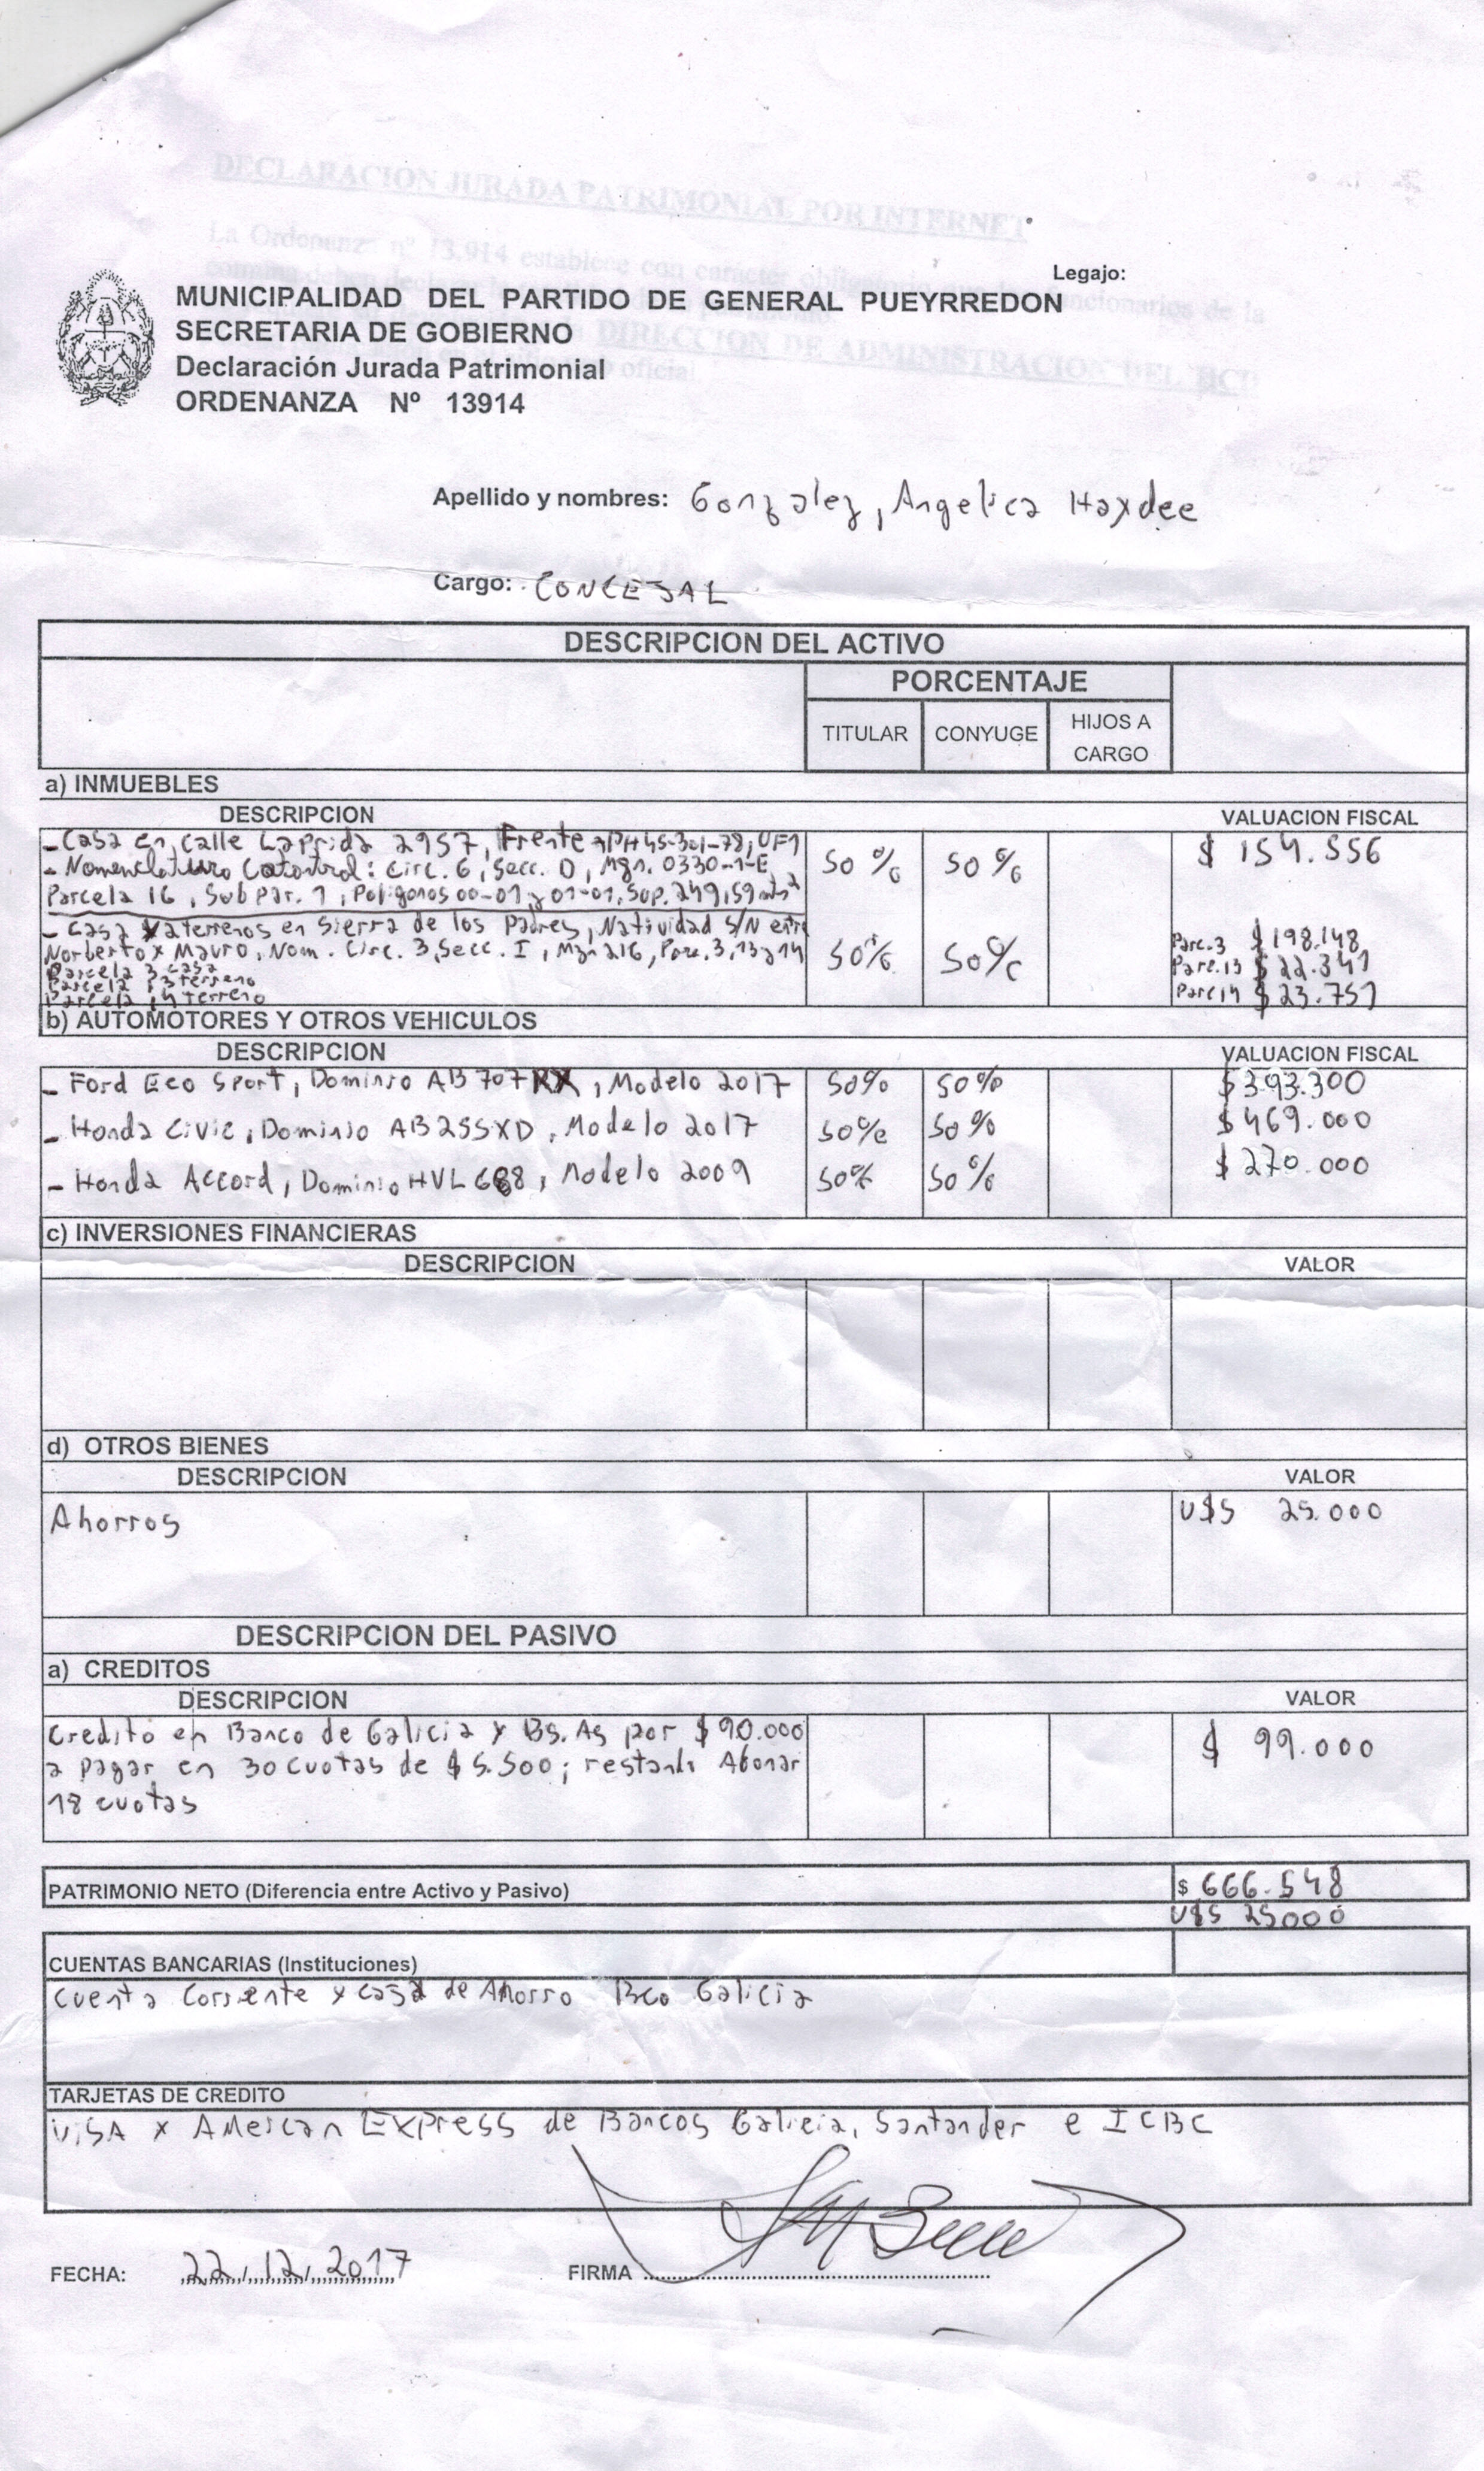 DECLARACION JURADA PATRIMONIAL POR INTERNET
La Ordenenz nº 13.914 establece con carácter obligatorio que los funcionarios de la
DIRECCION DE ADMINISTRACION DEL HCD
oficial
Legajo:
MUNICIPALIDAD DEL PARTIDO DE GENERAL PUEYRREDON
SECRETARIA DE GOBIERNO
Declaración Jurada Patrimonial
ORDENANZA Nº 13914
Apellido y nombres: Gonzalez, Angelica Haydee
Cargo: CONCEJAL
DESCRIPCION DEL ACTIVO
PORCENTAJE
TITULAR CONYUGE HIJOS A CARGO
a) INMUEBLES
DESCRIPCION VALUACION FISCAL
- Casa en calle Laprida 2957, Frente, UF1 50% 50% $ 154.556
- Nomenclatura Catastral: Circ. 6, Secc. D, Mzn. 0330-1-E,
Parcela 16, Sub Par. 1, Poligonos 00-01 y 01-01, Sup. 249,59 mts²
- Casa y terrenos en Sierra de los Padres, Natividad S/N entre
Norberto y Mauro, Nom. Circ. 3, Secc. I, Mzn 216, Parc. 3, 13 y 14 50% 50% Parc. 3 $ 198.148
Parcela 3 casa
Parcela 13 terreno Parc. 13 $ 22.341
Parcela 14 terreno Parc 14 $ 23.751
b) AUTOMOTORES Y OTROS VEHICULOS
DESCRIPCION VALUACION FISCAL
- Ford Eco Sport, Dominio AB 707, Modelo 2017 50% 50% $ 393.300
- Honda Civic, Dominio AB255XD, Modelo 2017 50% 50% $ 469.000
- Honda Accord, Dominio HVL 688, Modelo 2009 50% 50% $ 270.000
c) INVERSIONES FINANCIERAS
DESCRIPCION VALOR
d) OTROS BIENES
DESCRIPCION VALOR
Ahorros U$S 25.000
DESCRIPCION DEL PASIVO
a) CREDITOS
DESCRIPCION VALOR
Credito en Banco de Galicia y Bs. As por $ 90.000 $ 99.000
a pagar en 30 cuotas de $ 5.500; restando Abonar
18 cuotas
PATRIMONIO NETO (Diferencia entre Activo y Pasivo) $ 666.548
U$S 25000
CUENTAS BANCARIAS (Instituciones)
Cuenta Corriente y caja de Ahorro Bco Galicia
TARJETAS DE CREDITO
VISA y American Express de Bancos Galicia, Santander e ICBC
FECHA: 22, 12, 2017 FIRMA